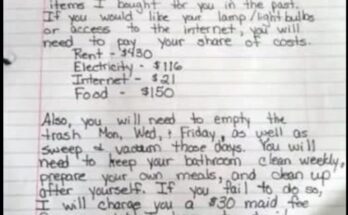 items I bought for you in the past.
If you would like your lamp/lightbulbs
or access to the internet, you will
need to pay your share of costs.
Rent - $430
Electricity - $116
Internet - $21
Food - $150
Also, you will need to empty the
trash Mon, Wed, + Friday, as well as
sweep + vacuum those days. You will
need to keep your bathroom clean weekly,
prepare your own meals, and clean up
after yourself. If you fail to do so,
I will charge you a $30 maid fee